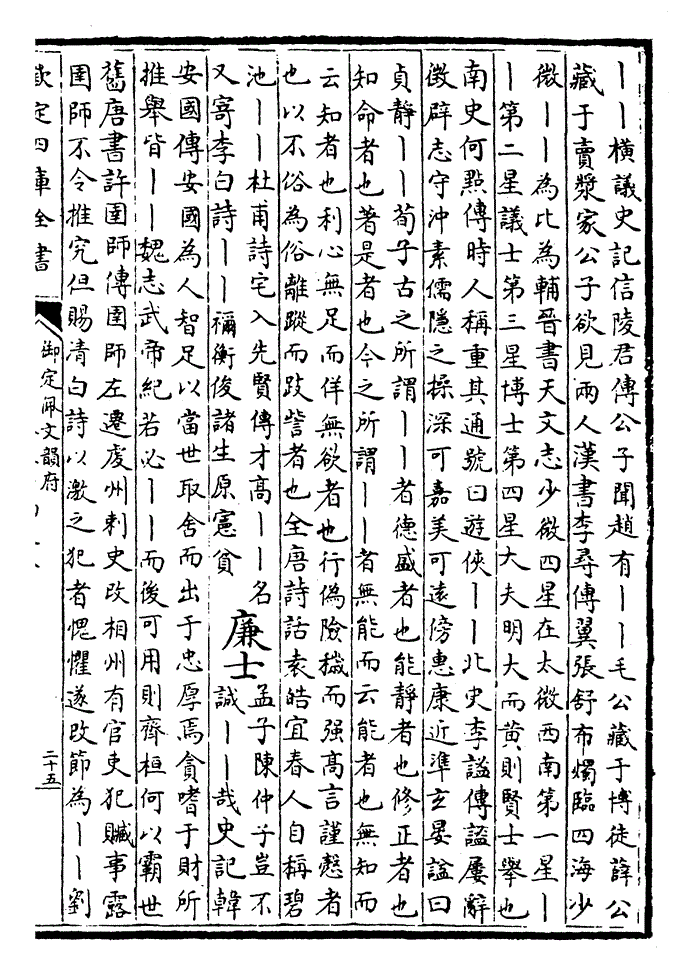 丨丨橫議史記信陵君傳公子聞趙有丨丨毛公藏于博徒薛公
藏于賣漿家公子欲見兩人漢書李尋傳翼張舒布燭臨四海少
微丨丨為比為輔晉書天文志少微四星在太微西南第一星丨
丨第二星議士第三星博士第四星大夫明大而黃則賢士舉也
南史何點傳時人稱重其通號曰遊俠丨丨北史李謐傳謐屢辭
徵辟志守沖素儒隱之操深可嘉美可遠傍惠康近準玄晏謚曰
貞靜丨丨荀子古之所謂丨丨者德盛者也能靜者也修正者也
知命者也著是者也今之所謂丨丨者無能而云能者也無知而
云知者也利心無足而佯無欲者也行偽險穢而强高言謹慤者
也以不俗為俗離蹤而跂訾者也全唐詩話袁皓宜春人自稱碧
池丨丨杜甫詩宅入先賢傳才高丨丨名
又寄李白詩丨丨禰衡俊諸生原憲貧
廉士
孟子陳仲子豈不
誠丨丨哉史記韓
安國傳安國為人智足以當世取舍而出于忠厚焉貪嗜于財所
推舉皆丨丨魏志武帝紀若必丨丨而後可用則齊桓何以霸世
舊唐書許圉師傳圉師左遷虔州刺史改相州有官吏犯贓事露
圉師不令推究但賜清白詩以激之犯者愧懼遂改節為丨丨劉
欽定四庫全書
御定佩文韻府
二十五